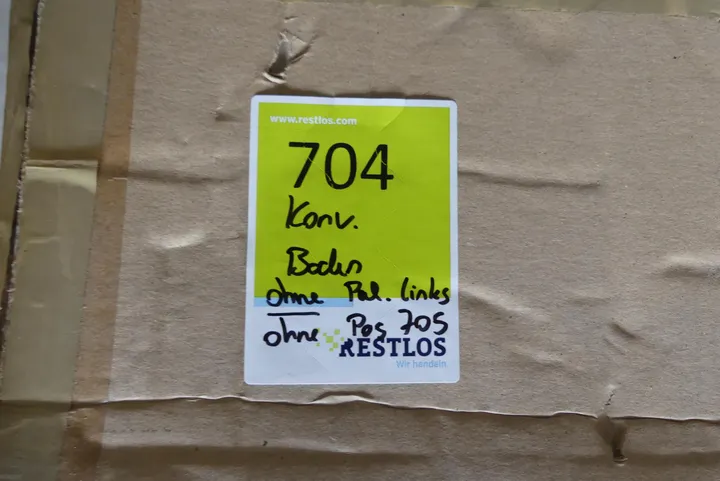 www.restlos.com
704
Konv.
Boden
ohne Pal. links
ohne Pos 705
RESTLOS
Wir handeln